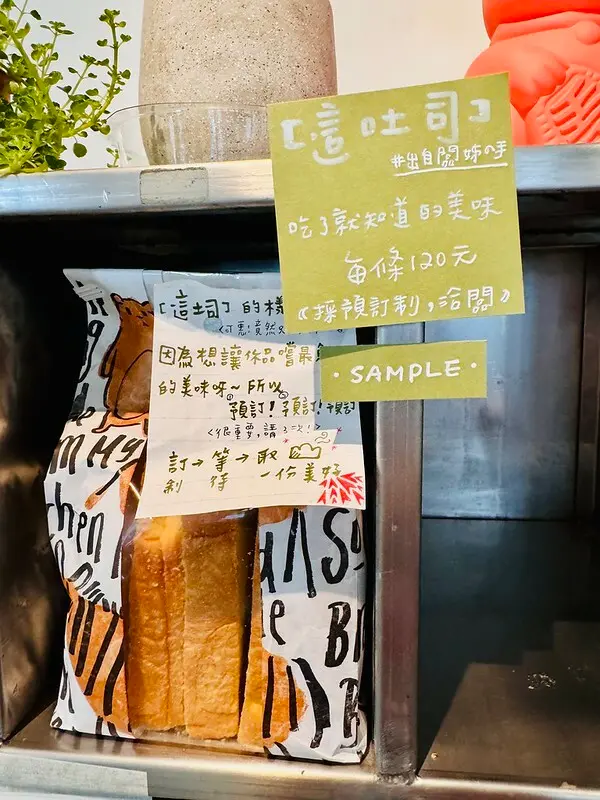 [這吐司]
#出自闆姊の手
吃了就知道的美味
每條120元
《採預訂制,洽闆》
·SAMPLE·
[這吐司]的樣
因為想讓你品嚐最
的美味呀~所以
預訂!預訂!預訂
<很重要,講3次!>
訂→等→取
制 待 一份美好